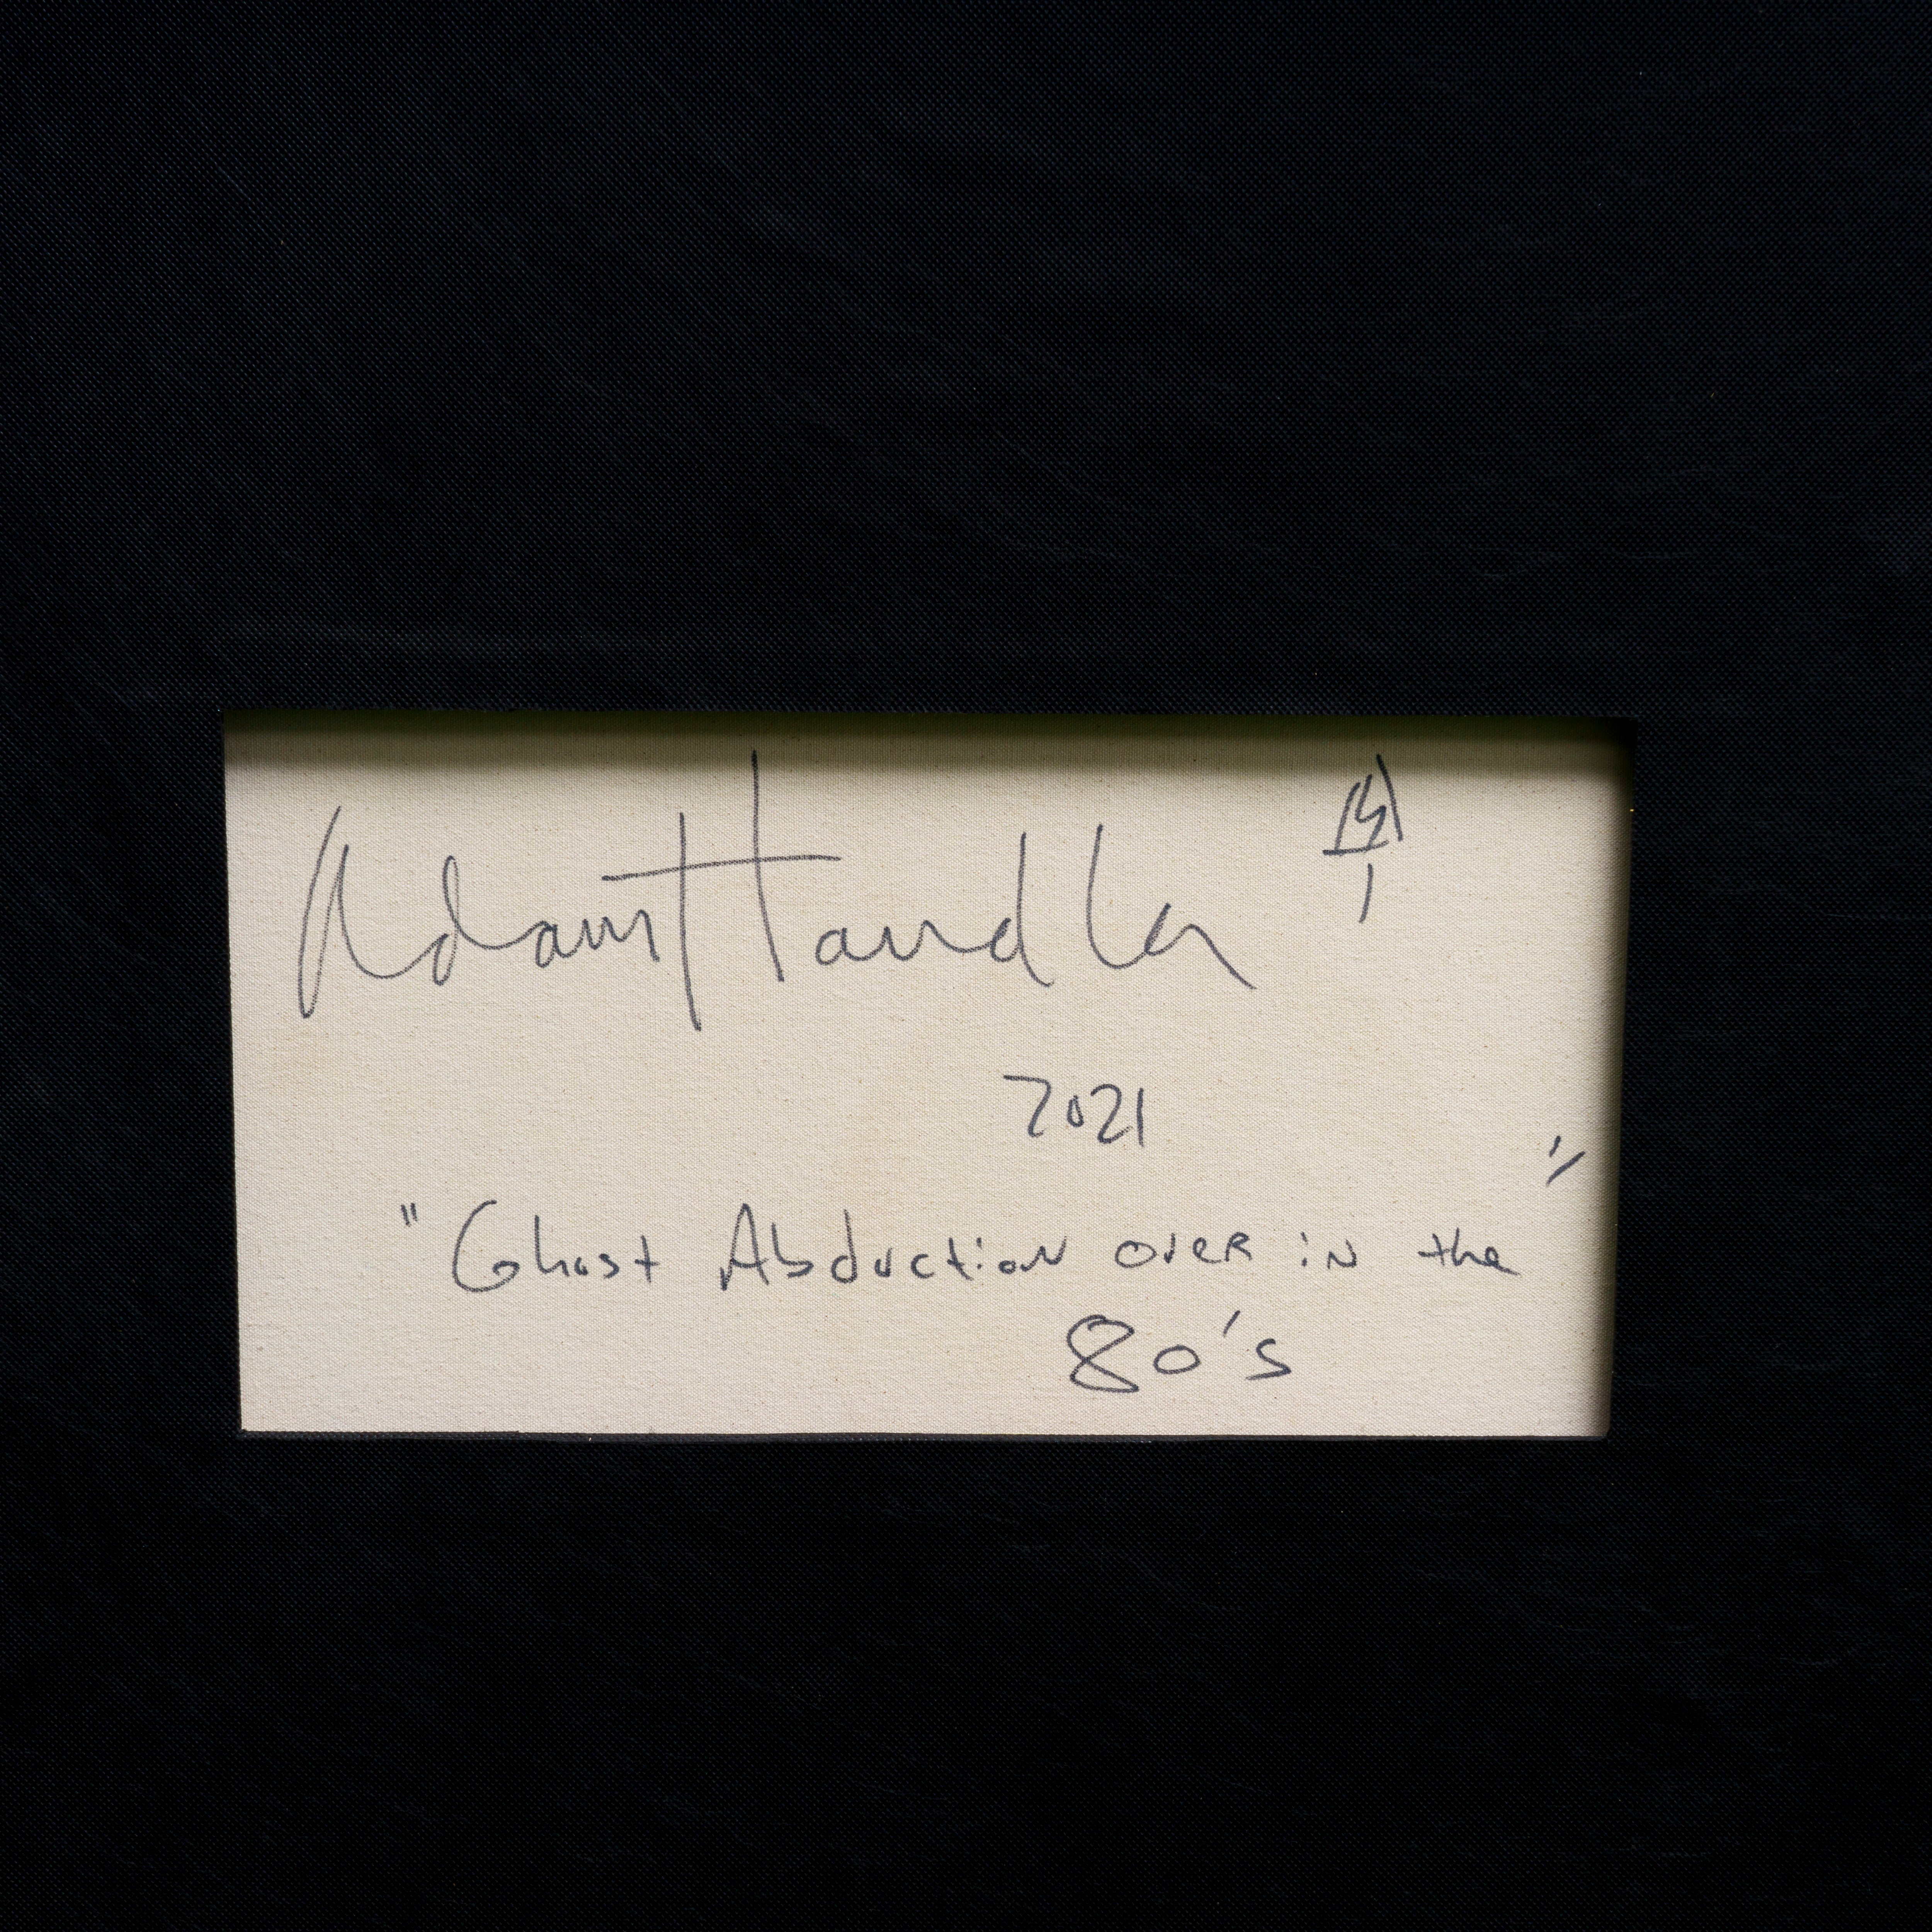 Adam Handler
2021
"Ghost Abduction over in the"
80's